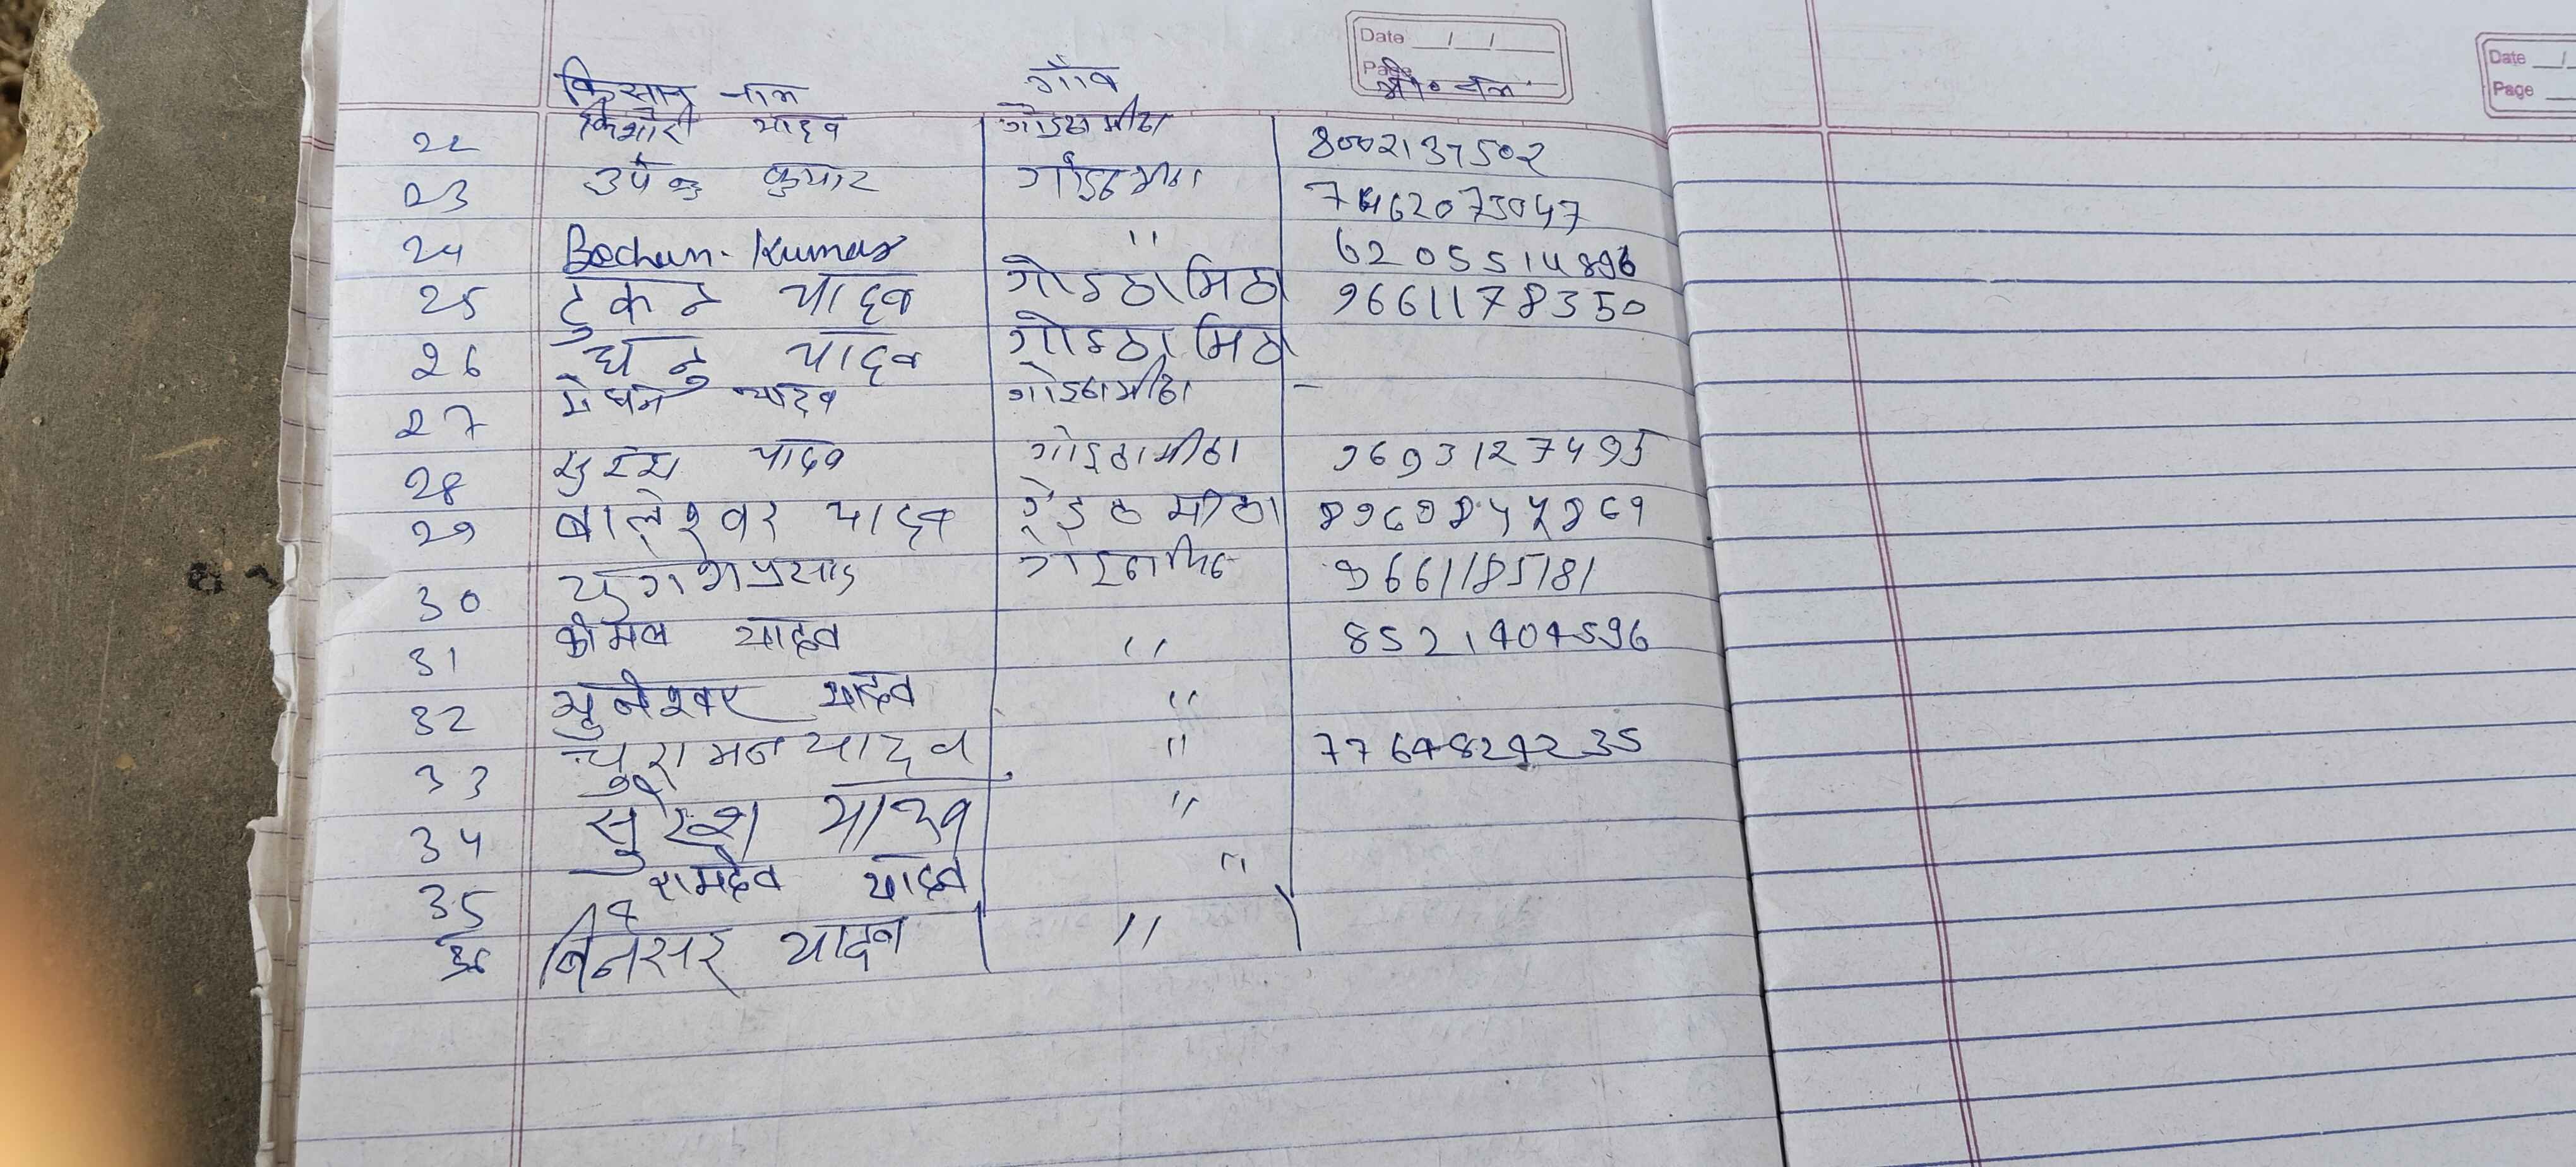 Date / /
Page
किसान नाम गाँव मो० नं०
22 किशोरी यादव गोइठामीठा 8002137502
23 कुमार गोइठमीठा 7462073047
24 Bechan Kumar " 6205514896
25 टुकन यादव गोइठामिठा 9661178350
26 घनु यादव गोइठामिठा
27 मेघन यादव गोइठामीठा -
28 सुरेश यादव गोइठामीठा 9693127495
29 बालेश्वर यादव मीठा
30 9661185181
31 कोमल यादव " 8521404596
32 भुनेश्वर यादव "
33 चुरामन यादव " 7764829235
34 सुरेश यादव "
35 रामदेव यादव "
36 जिनेसर यादव "
Date /
Page